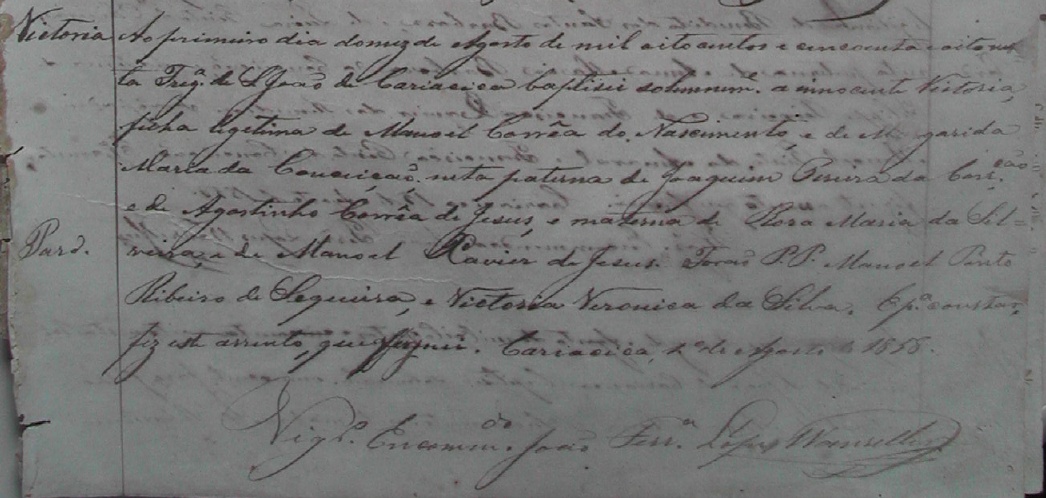 Victoria Ao primeiro dia do mez de Agosto de mil oito centos e cincoenta e oito
ta Freg.ª de S. João de Cariacica baptisei solemnem. a innocente Victoria,
filha legitima de Manoel Corrêa do Nascimento, e de Margarida
Maria da Conceição, neta paterna de Joaquim Pereira da
e de Agostinho Corrêa de Jesus, e materna de Maria da Sil=
Pard. veira, e de Manoel Xavier de Jesus. Forão P.P. Manoel Pinto
Ribeiro de Sequeira, e Victoria Veronica da Silva. E p.ª constar,
fiz este assento, que assignei. Cariacica, 1º de Agosto de 1858.
Vigr.º Encomm.do João Ferr.ª Lopes